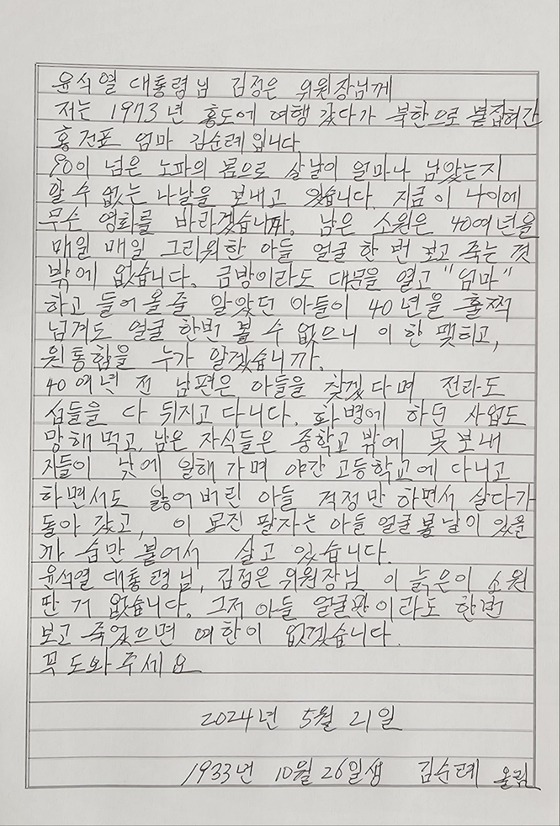 윤석열 대통령님 김정은 위원장님께
저는 1973년 홍도에 여행 갔다가 북한으로 붙잡혀간
홍건표 엄마 김순례입니다
90이 넘은 노파의 몸으로 살날이 얼마나 남았는지
할 수 없는 나날을 보내고 있습니다. 지금 이 나이에
무슨 영화를 바라겠습니까. 남은 소원은 40여년을
매월 매일 그리워한 아들 얼굴 한 번 보고 죽는 것
밖에 없습니다. 금방이라도 대문을 열고 "엄마"
하고 들어올줄 알았던 아들이 40년을 훌쩍
넘겨도 얼굴 한번 볼 수 없으니 이 한 맺히고,
원통함을 누가 알겠습니까.
40여년 전 남편은 아들을 찾겠다며 전라도
섬들을 다 뒤지고 다니다. 화병에 하던 사업도
망해먹고, 남은 자식들은 중학교 밖에 못보내
자들이 낮에 일해 가며 야간 고등학교에 다니고
하면서도 잃어버린 아들 걱정만 하면서 살다가
돌아 갔고, 이 모진 팔자는 아들 얼굴 볼 날이 있을
까 숨만 붙어서 살고 있습니다.
윤석열 대통령님, 김정은 위원장님 이 늙은이 소원
딴 거 없습니다. 그저 아들 얼굴 이라도 한번
보고 죽었으면 여한이 없겠습니다.
꼭 도와주세요
2024년 5월 21일
1933년 10월 26일생 김순례 올림